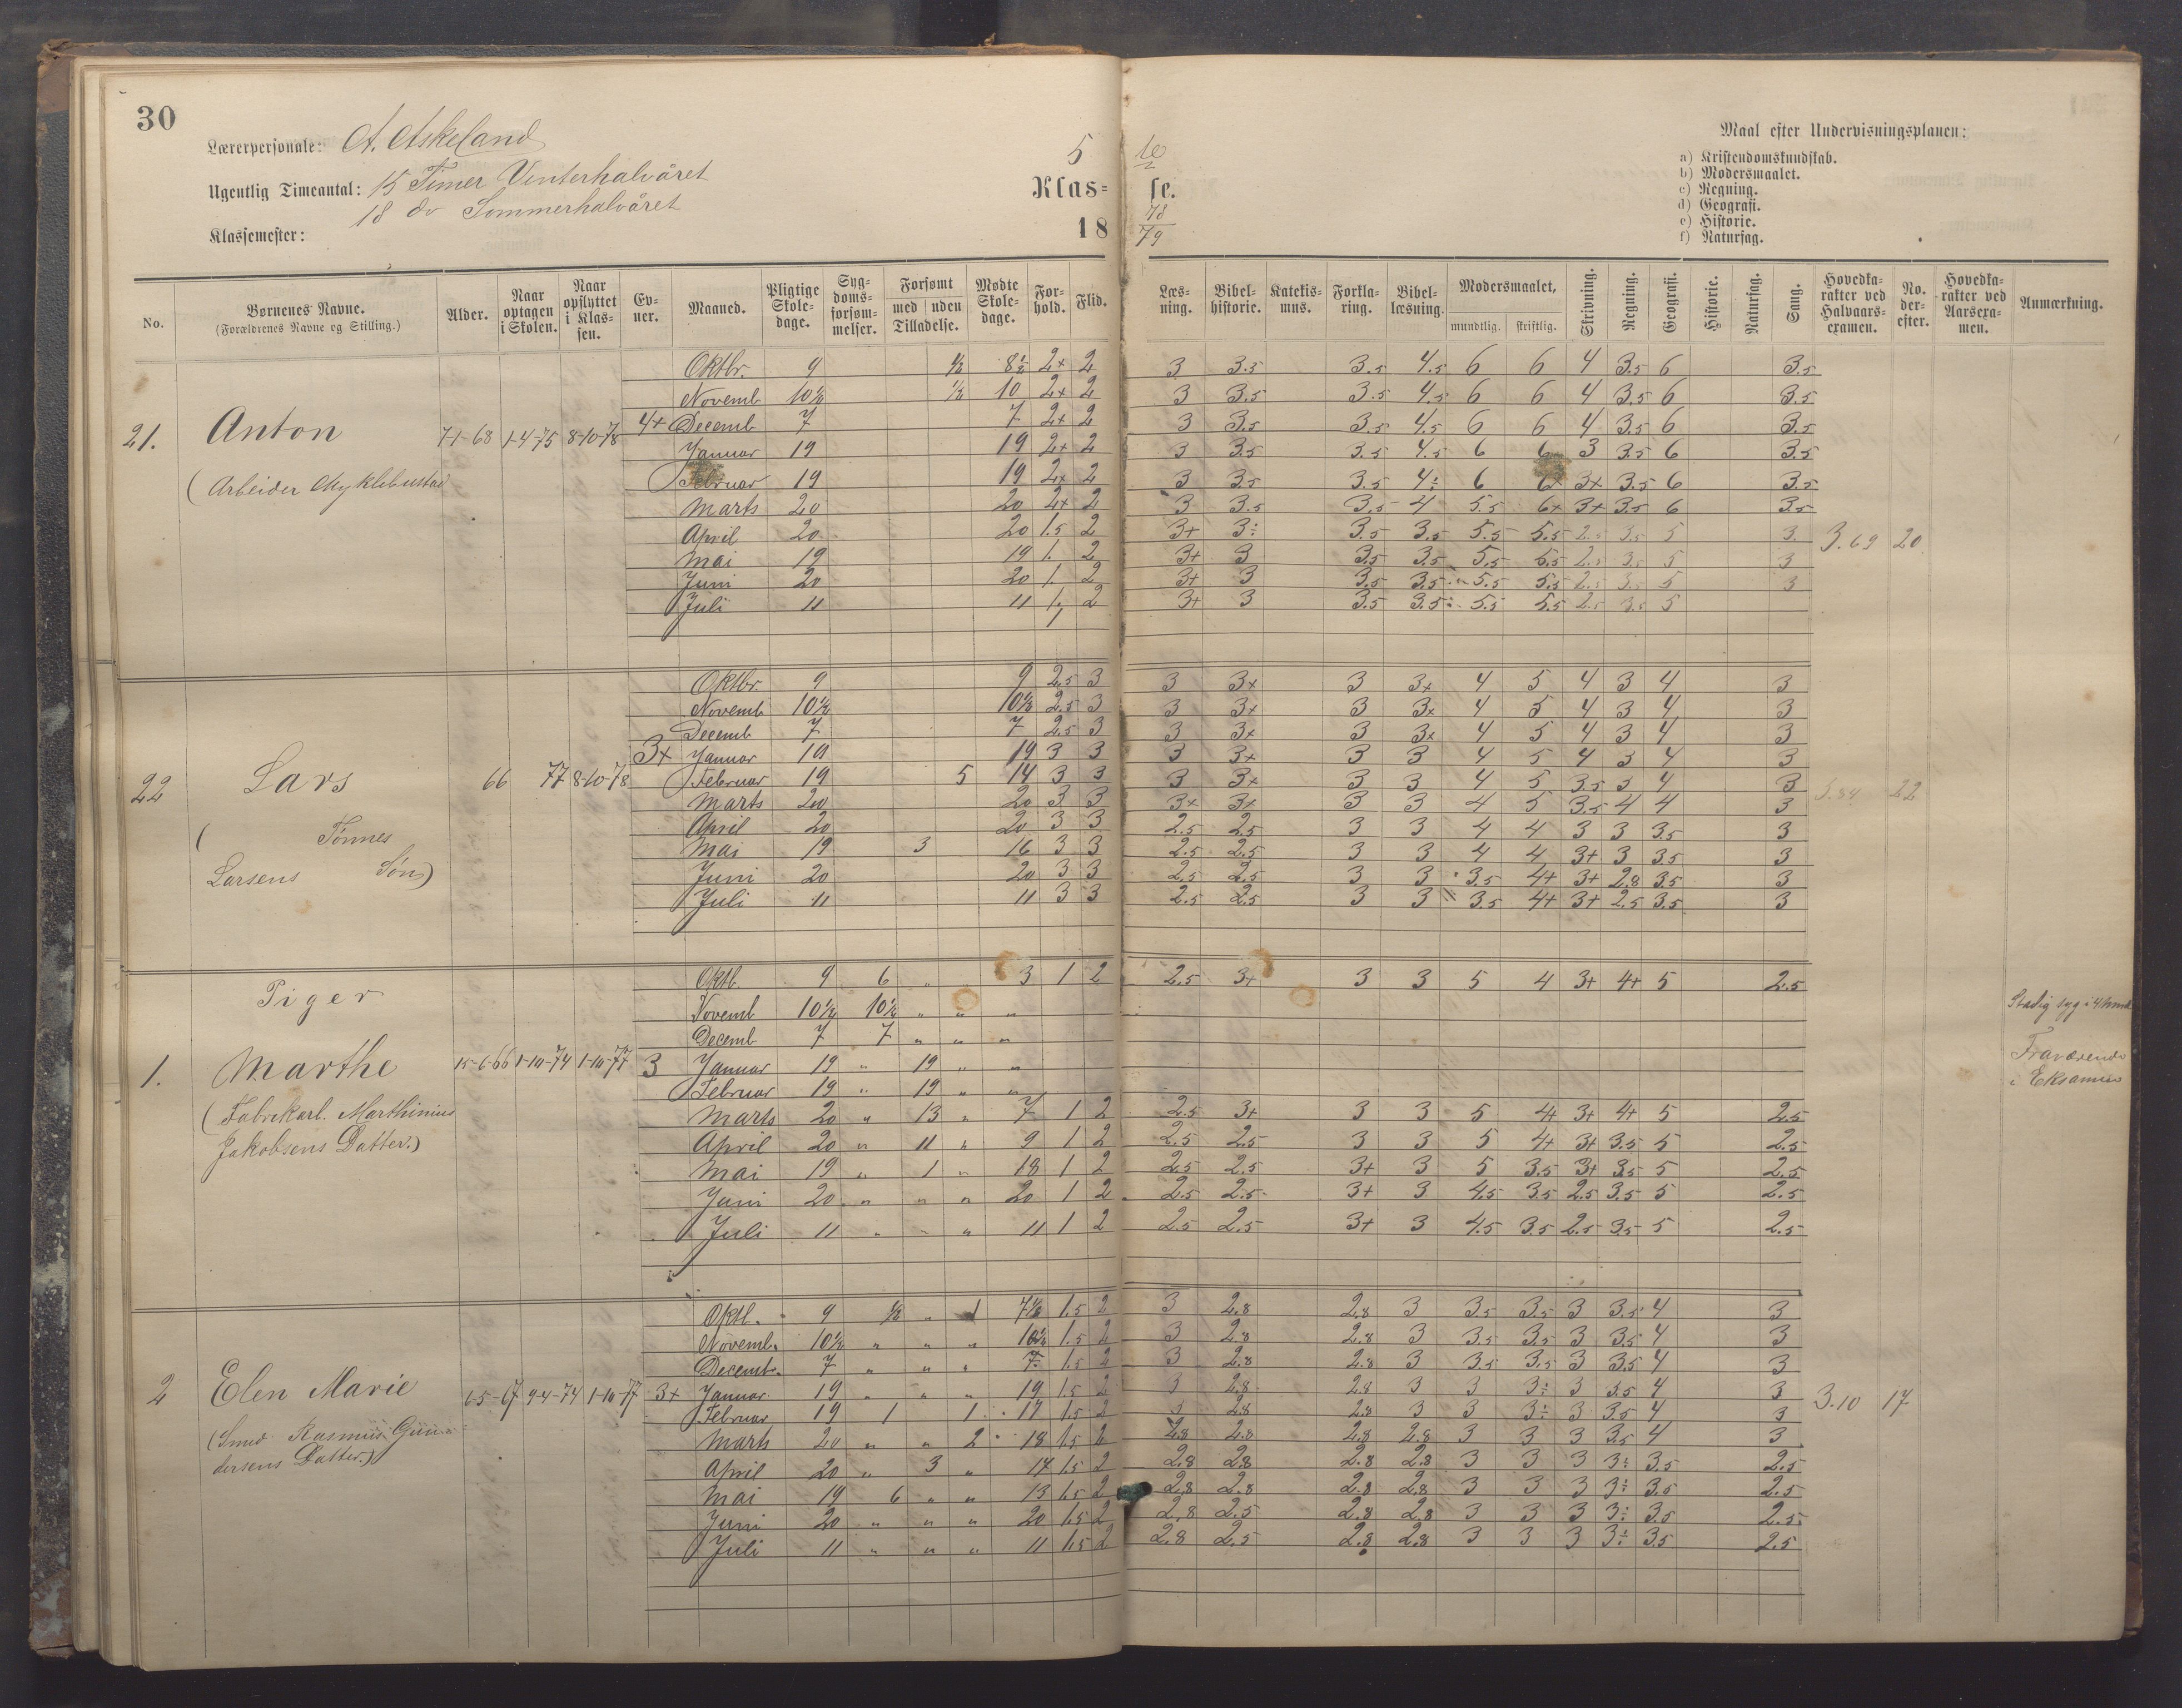 30
Lærerpersonale: A. Askeland
Ugentlig Timeantal: 15 Timer Vinterhalvåret
18 do Sommerhalvåret
Klassemester:
5 te
Klas= se.
18 78/79
Maal efter Undervisningsplanen:
a) Kristendomskundskab.
b) Modersmaalet.
c) Regning.
d) Geografi.
e) Historie.
f) Naturfag.
No. | Børnenes Navne. (Forældrenes Navne og Stilling.) | Alder. | Naar optagen i Skolen. | Naar opflyttet i Klassen. | Evner. | Maaned. | Pligtige Skoledage. | Sygdomsforsømmelser. | Forsømt med uden Tilladelse. | Mødte Skoledage. | Forhold. | Flid. | Læsning. | Bibelhistorie. | Katekismus. | Forklaring. | Bibellæsning. | Modersmaalet, mundtlig. skriftlig. | Skrivning. | Regning. | Geografi. | Historie. | Naturfag. | Sang. | Hovedkarakter ved Halvaarsexamen. | No. derefter. | Hovedkarakter ved Aarsexamen. | Anmærkning.
21. Anton 7-1-68 1-4-75 8-10-78 4+
(Arbeider Myklebustad
3.69 20
Oktbr. 9 ½ 8½ 2+ 2 3 3.5 3.5 4.5 6 6 4 3.5 6 3.5
Novemb 10½ ½ 10 2+ 2 3 3.5 3.5 4.5 6 6 4 3.5 6 3.5
Decemb 7 7 2+ 2 3 3.5 3.5 4.5 6 6 4 3.5 6 3.5
Januar 19 19 2+ 2 3 3.5 3.5 4.5 6 6 3 3.5 6 3.5
Februar 19 19 2+ 2 3 3.5 3.5 4÷ 6 6+ 3+ 3.5 6 3.5
Marts 20 20 2+ 2 3 3.5 3.5 4 5.5 6+ 3+ 3.5 6 3.5
April 20 20 1.5 2 3+ 3÷ 3.5 3.5 5.5 5.5 2.5 3.5 5 3
Mai 19 19 1. 2 3+ 3 3.5 3.5 5.5 5.5 2.5 3.5 5 3
Juni 20 20 1. 2 3+ 3 3.5 3.5 5.5 5.5 2.5 3.5 5 3
Juli 11 11 1. 2 3+ 3 3.5 3.5 5.5 5.5 2.5 3.5 5
22 Lars 66 77 8-10-78 3+
( Tønnes
Larsens Søn)
22
Oktbr. 9 9 2.5 3 3 3+ 3 3+ 4 5 4 3 4 3
Novemb 10½ 10½ 2.5 3 3 3+ 3 3+ 4 5 4 3 4 3
Decemb 7 7 2.5 3 3 3+ 3 3+ 4 5 4 3 4 3
Januar 19 19 3 3 3 3+ 3 3 4 5 4 3 4 3
Februar 19 5 14 3 3 3 3+ 3 3 4 5 3.5 3 4 3
Marts 20 20 3 3 3+ 3+ 3 3 4 5 3.5 4 4 3
April 20 20 3 3 2.5 2.5 3 3 4 4 3 3 3.5 3
Mai 19 3 16 3 3 2.5 2.5 3 3 4 4 3+ 3 3.5 3
Juni 20 20 3 3 2.5 2.5 3 3 3.5 4+ 3+ 2.8 3.5 3
Juli 11 11 3 3 2.5 2.5 3 3 3.5 4+ 3+ 2.5 3.5 3
Piger
1. Marthe 15-6-66 1-10-74 1-10-77 3
(Fabrikarb. Marthinius
Jakobsens Datter.)
Stadig syg i 4 Mnd
Fraværende
i Eksamen
Oktb. 9 6 " 3 1 2 2.5 3+ 3 3 5 4 3+ 4+ 5 2.5
Novemb 10½ 10½ " " "
Decemb 7 7 " " "
Januar 19 " 19 " "
Februar 19 " 19 " "
Marts 20 " 13 " 7 1 2 2.5 3+ 3 3 5 4+ 3+ 4+ 5 2.5
April 20 " 11 " 9 1 2 2.5 2.5 3 3 5 4+ 3+ 3.5 5 2.5
Mai 19 " 1 " 18 1 2 2.5 2.5 3+ 3 5 3.5 3+ 3.5 5 2.5
Juni 20 " " " 20 1 2 2.5 2.5 3+ 3 4.5 3.5 2.5 3.5 5 2.5
Juli 11 " " " 11 1 2 2.5 2.5 3+ 3 4.5 3.5 2.5 3.5 5 2.5
2 Elen Marie 1-5-67 9-4-74 1-10-77 3+
(Smed Rasmus Gun-
dersens Datter.)
3.10 17
Oktb. 9 ½ " 1 7½ 1.5 2 3 2.8 2.8 3 3.5 3.5 3 3.5 4 3
Novemb. 10½ " " " 10½ 1.5 2 3 2.8 2.8 3 3.5 3.5 3 3.5 4 3
Decembr. 7 " " " 7 1.5 2 3 2.8 2.8 3 3.5 3.5 3 3.5 4 3
Januar. 19 " " " 19 1.5 2 3 2.8 2.8 3 3 3÷ 3 3.5 4 3
Februar 19 1 1 17 1.5 2 3 2.8 2.8 3 3 3÷ 3 3.5 4 3
Marts 20 " " 2 18 1.5 2 2.8 2.8 2.8 2.8 3 3 3 3.5 4 3
April 20 " 3 " 17 1.5 2 2.8 2.8 2.8 2.8 3 3 3 3÷ 3.5 2.5
Mai 19 6 " " 13 1.5 2 2.8 2.8 2.8 2.8 3 3 3 3÷ 3.5 2.5
Juni 20 " " " 20 1.5 2 2.8 2.5 2.8 2.8 3 3 3 3÷ 3.5 2.5
Juli 11 " " " 11 1.5 2 2.8 2.5 2.8 2.8 3 3 3 3÷ 3.5 2.5